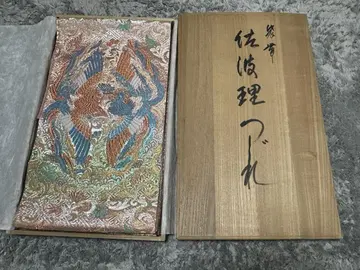 袋帯
佐波理つづれ